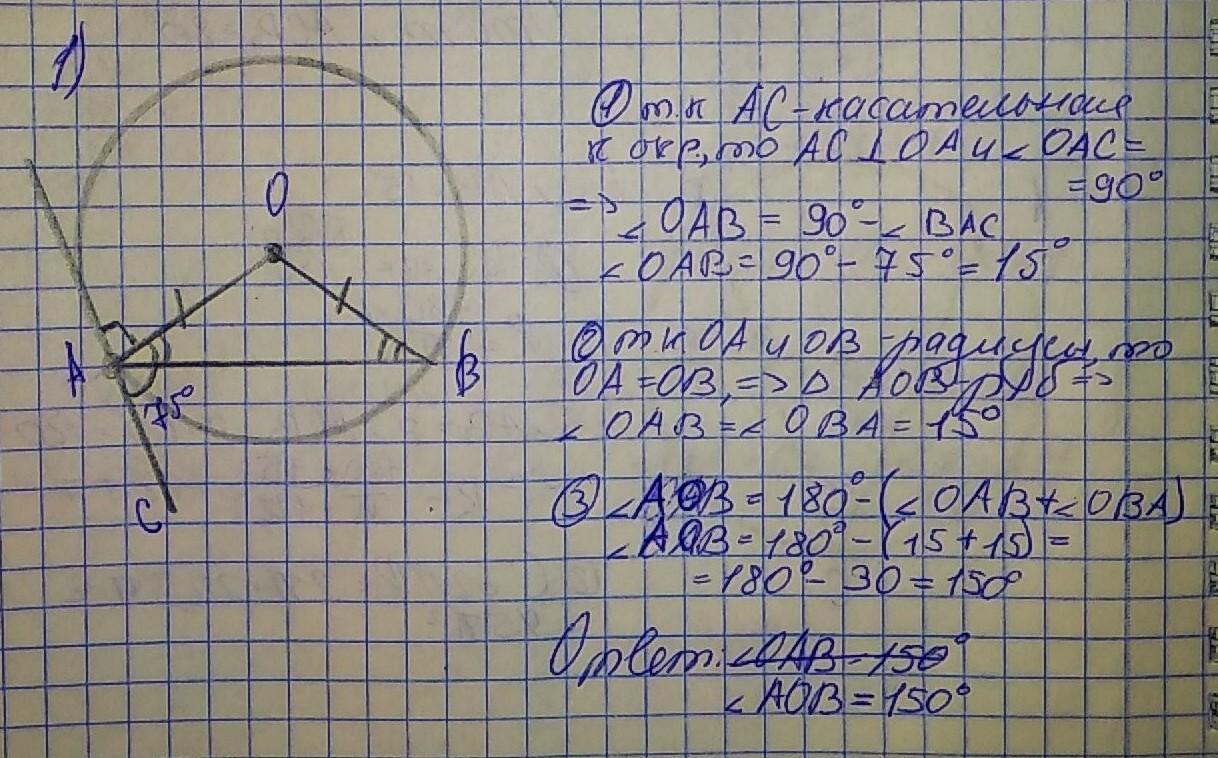 1)
O
A
B
75°
C
① т.к AC-касательная
к окр, то AC ⊥ OA и ∠ OAC =
= 90°
=> ∠ OAB = 90° - ∠ BAC
∠ OAB = 90° - 75° = 15°
② т к OA и OB - радиусы, то
OA = OB, => Δ AOB - р/б =>
∠ OAB = ∠ OBA = 15°
③ ∠AOB = 180° - (∠ OAB + ∠ OBA)
∠AOB = 180° - (15 + 15) =
= 180° - 30 = 150°
Ответ: ∠OAB - 150°
∠ AOB = 150°